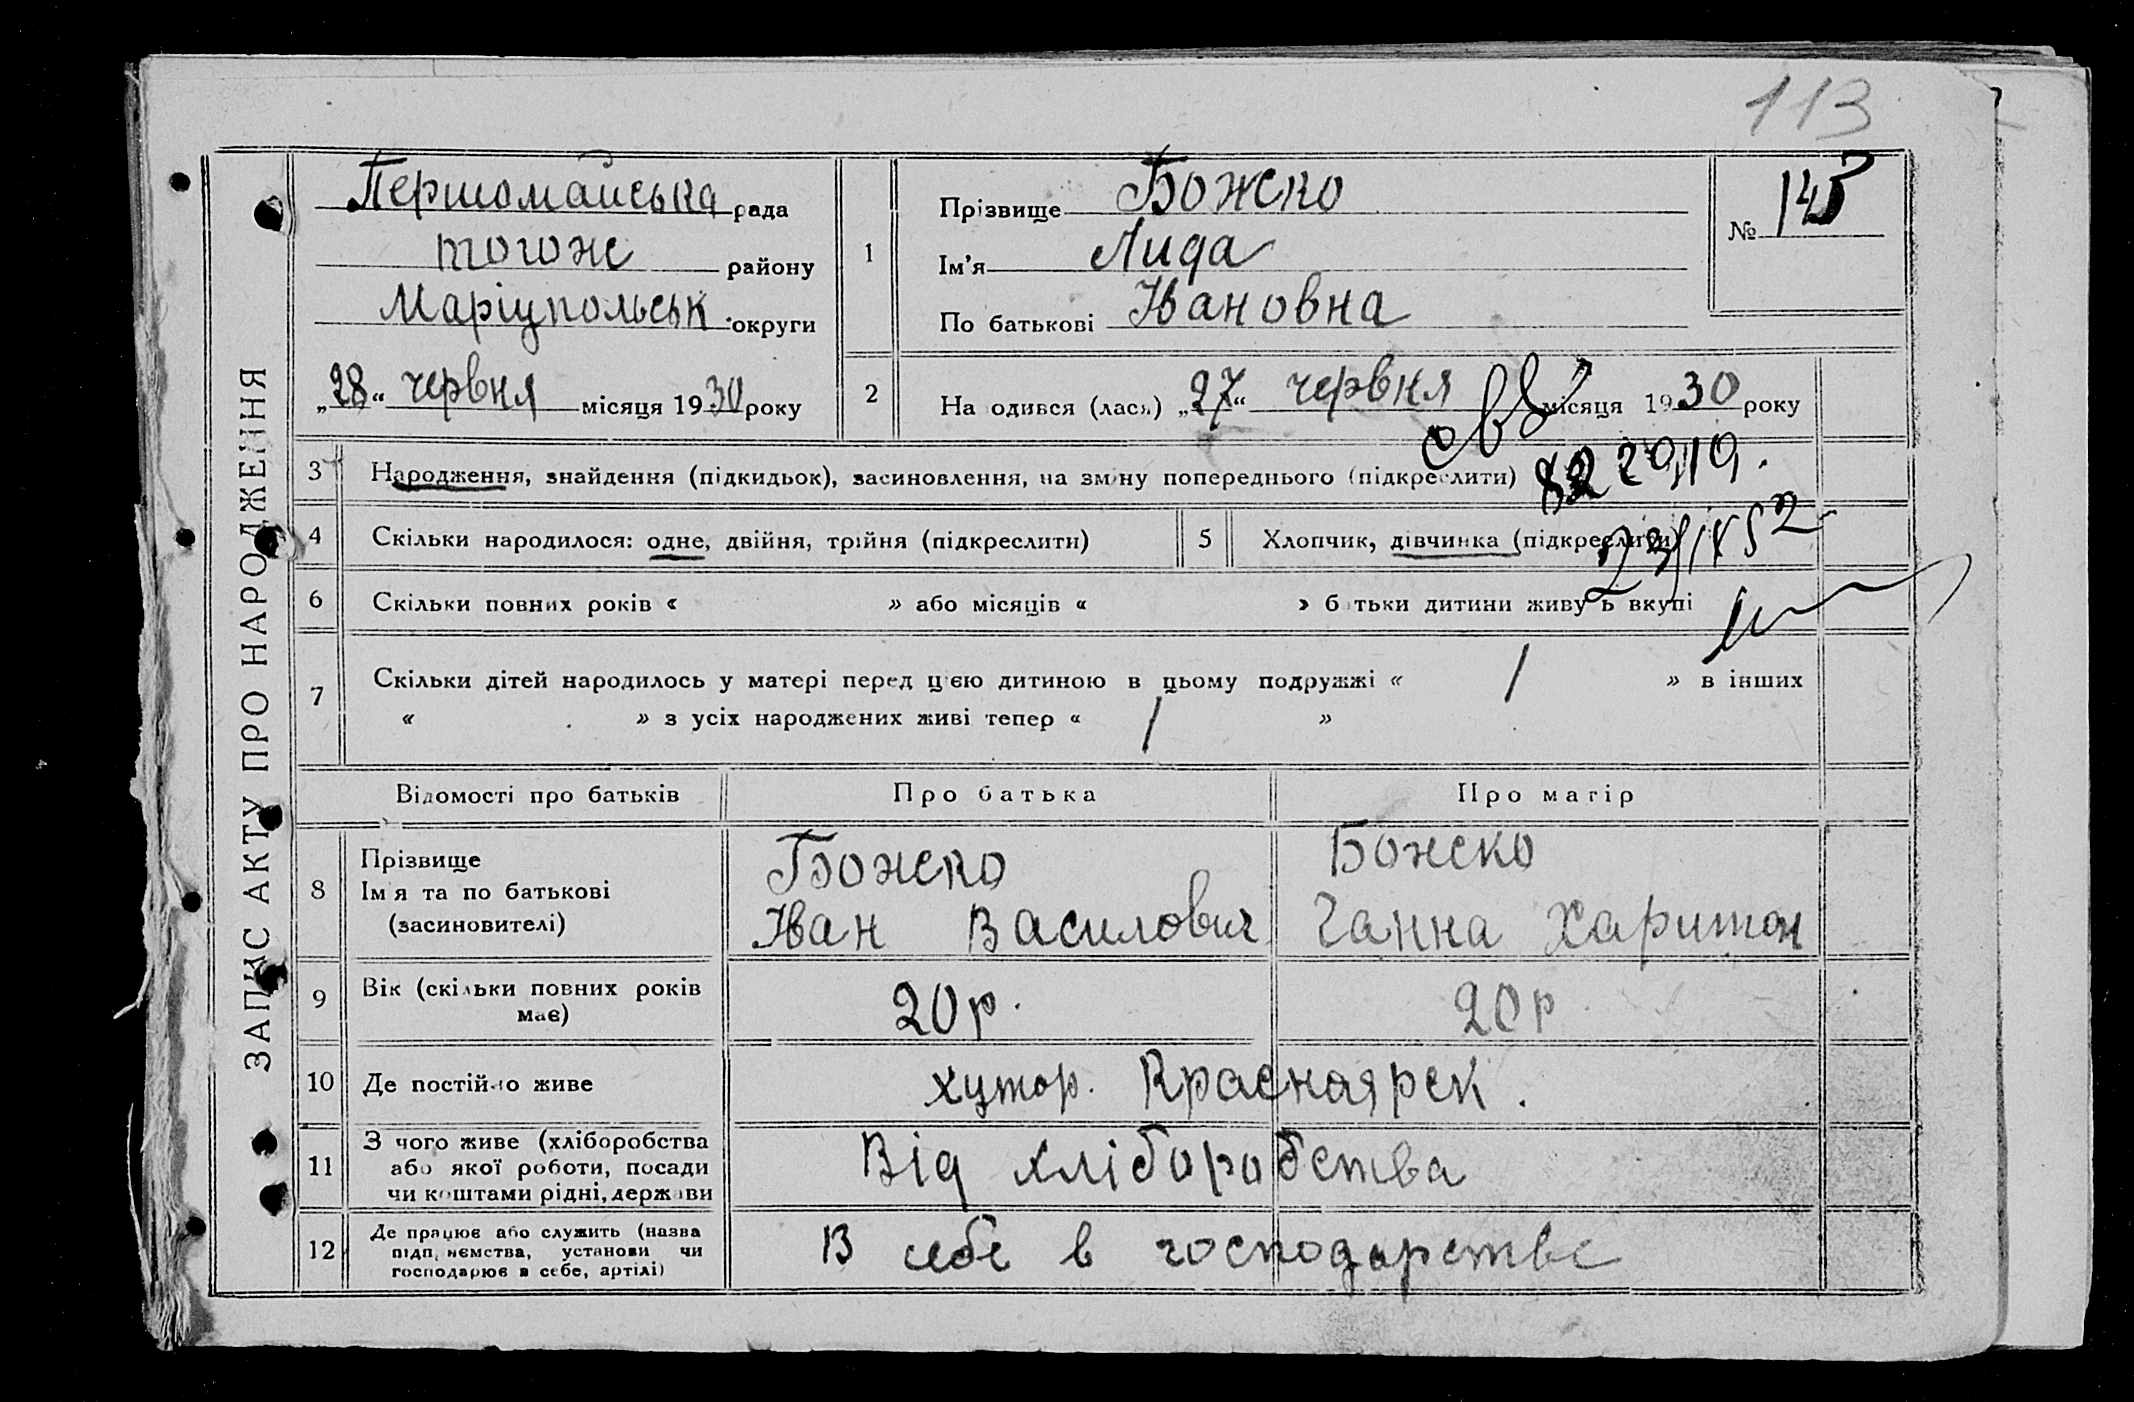 113
ЗАПИС АКТУ ПРО НАРОДЖЕННЯ
Першомайська рада
тогож району
Маріупольськ. округи
„28“ червня місяця 1930 року
1
Прізвище Божко
Ім'я Лида
По батькові Ивановна
№ 145
2 На одився (лась) „27“ червня місяця 1930 року
3 Народження, знайдення (підкидьок), засиновлення, на зміну попереднього (підкреслити)
4 Скільки народилося: одне, двійня, трійня (підкреслити)
5 Хлопчик, дівчинка (підкреслити)
6 Скільки повних років « » або місяців « » батьки дитини живуть вкупі
7 Скільки дітей народилось у матері перед цією дитиною в цьому подружжі « 1 » в інших
« » з усіх народжених живі тепер « 1 »
Відомості про батьків Про батька Про матір
8 Прізвище
Імя та по батькові
(засиновителі)
Божко
Иван Василович
Божко
Ганна Харитон
9 Вік (скільки повних років
має)
20 р. 20 р
10 Де постійно живе хутор. Красноярск.
11 З чого живе (хліборобства
або якої роботи, посади
чи коштами рідні, держави
Від хліборобства
12 Де працює або служить (назва
підп, немства, установи чи
господарює в себе, артілі)
В себе в господарстве